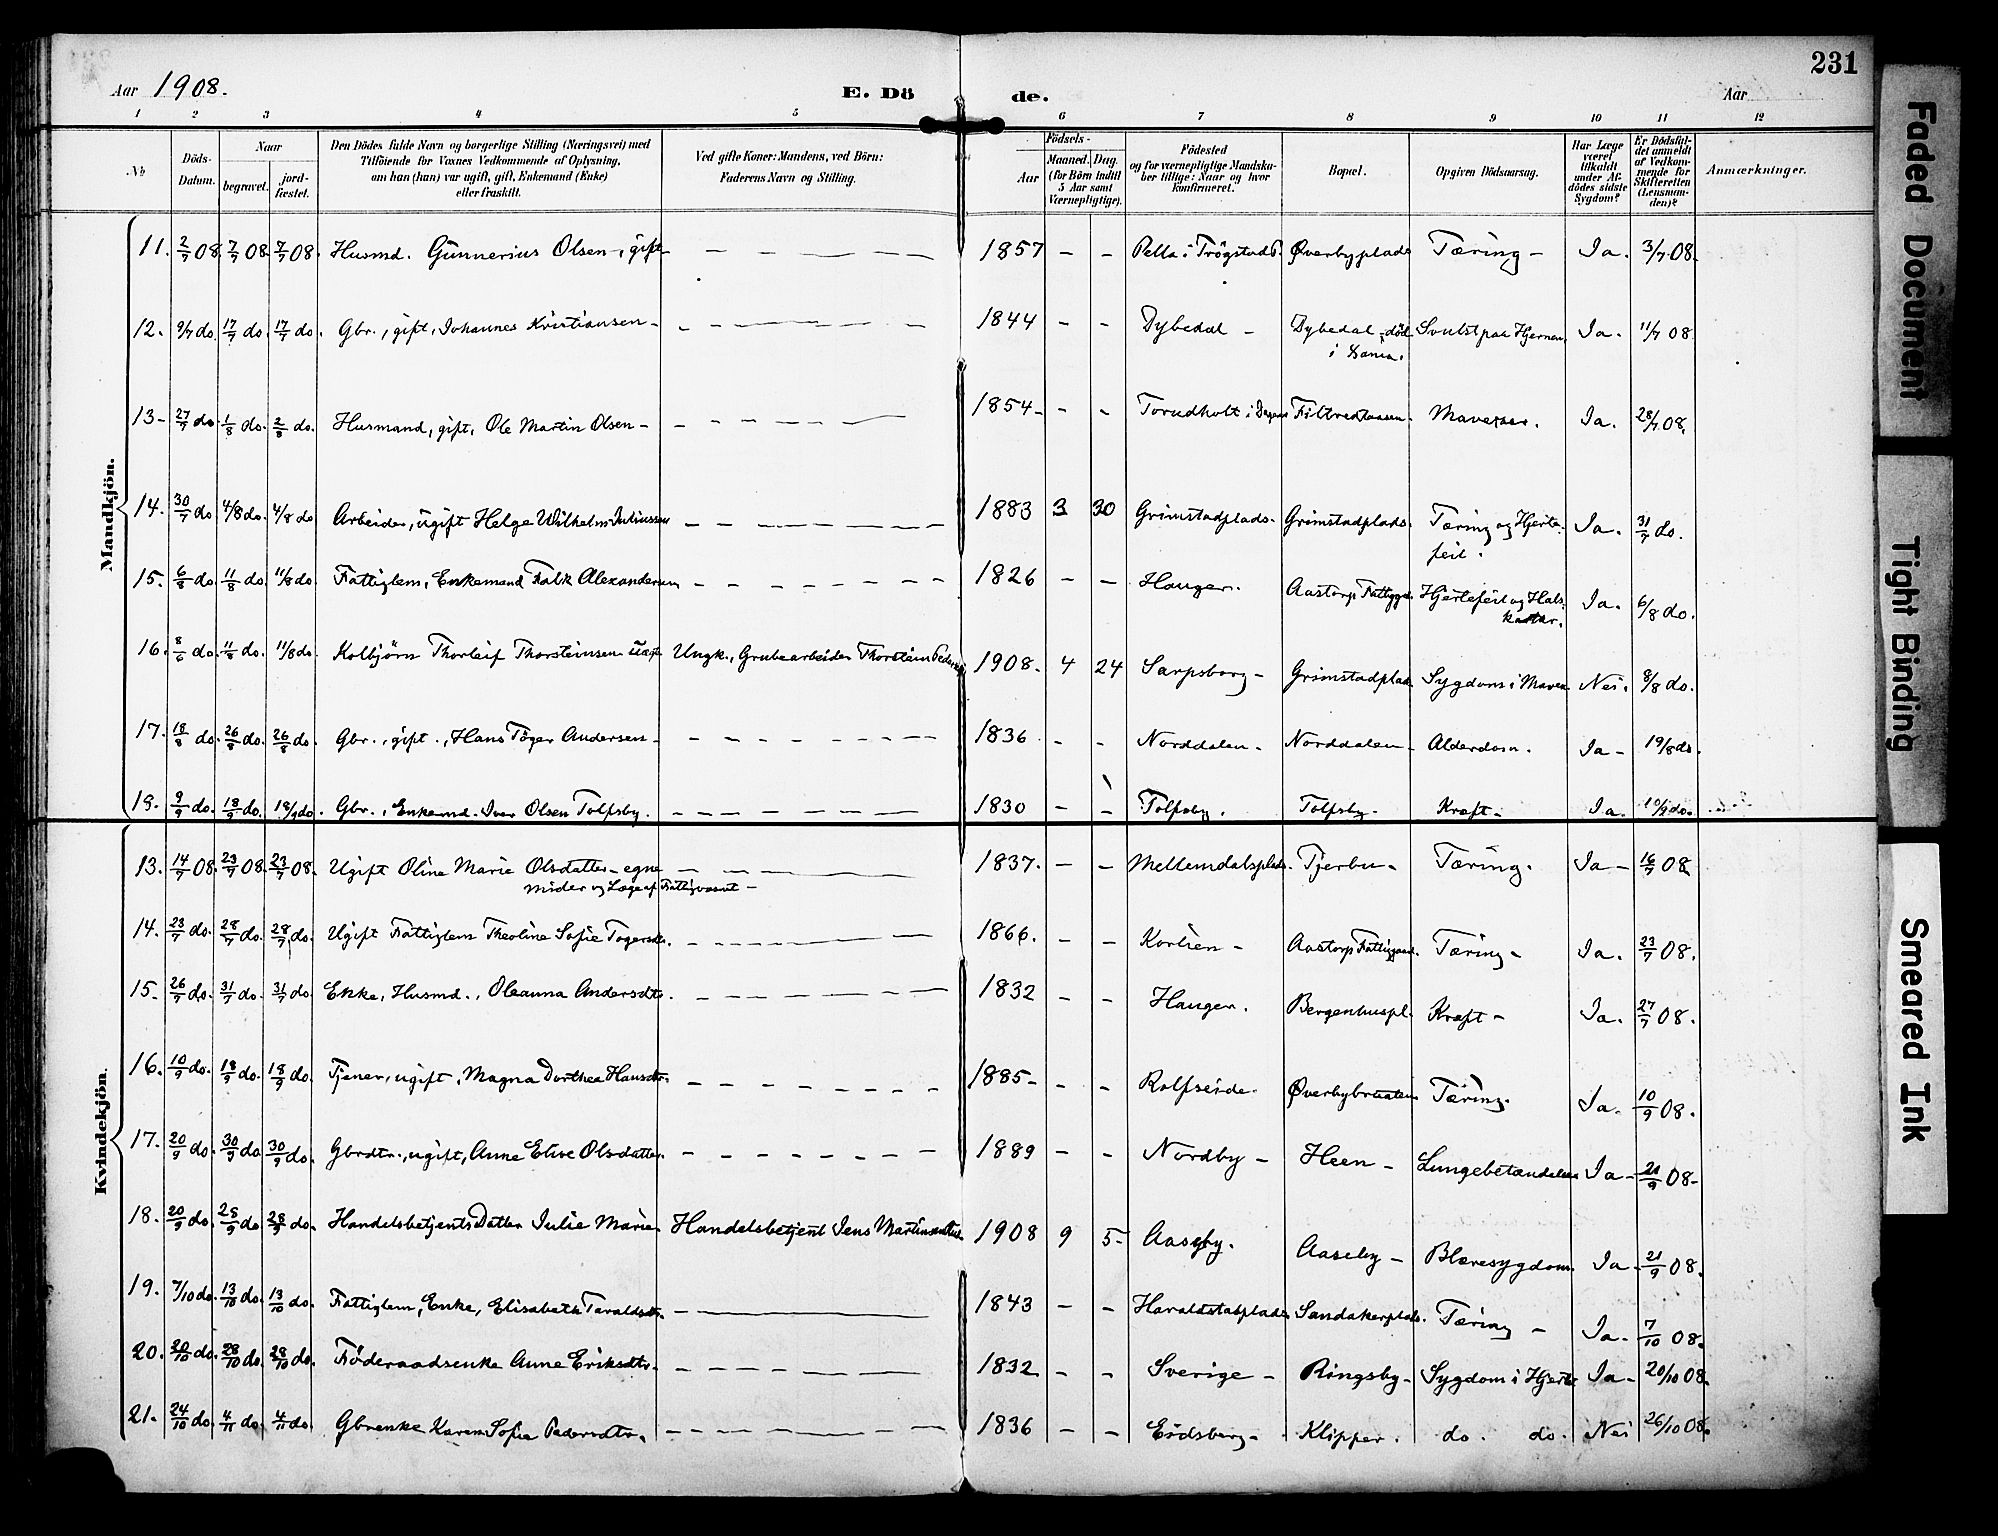 231
Aar 1908.
E. Döde.
Aar
1 2 3 4 5 6 7 8 9 10 11 12
No
Döds-Datum.
Naar
begravet.
jord-fæstet.
Den Dödes fulde Navn og borgerlige Stilling (Næringsvei) med
Tilföiende for Voxnes Vedkommende af Oplysning,
om han (hun) var ugift, gift, Enkemand (Enke)
eller fraskilt.
Ved gifte Koner: Mandens, ved Börn:
Faderens Navn og Stilling.
Födsels-
Aar
Maaned. Dag.
(for Börn indtil
5 Aar samt
Værnepligtige).
Födested
og for værnepligtige Mandska-
ber tillige: Naar og hvor
konfirmeret.
Bopæl.
Opgiven Dödsaarsag.
Har Læge
været
tilkaldt
under Af-
dödes sidste
Sygdom?
Er Dödsfal-
det anmeldt
af Vedkom-
mende for
Skifteretten
(Lensman-
den)?
Anmærkninger.
Mandkjön.
11. 2/7 08. 7/7 08. 7/7 08. Husmd. Gunnerius Olsen, gift — 1857 — — Pella i Trögstad Øverbyplads Tæring — Ja. 3/7 08.
12. 9/7 do. 17/7 do. 17/7 do. Gbr., gift, Johannes Kristiansen — 1844 — — Dybedal — Dybedal, död Svulst paa Hjernen Ja. 11/7 08.
13 — 27/7 do. 1/8 do. 2/8 do. Husmand, gift, Ole Martin Olsen — 1854 — — Torudholt i Ja. 28/7 08.
14. 30/7 do 4/8 do. 4/8 do Arbeider, ugift Helge Wilhelm Juliussen — 1883 3 30 Grimstadplads. Grimstadplads. Tæring og Hjerte-
feil. Ja. 31/7 do.
15. 6/8 do. 11/8 do 11/8 do Fattiglem, Enkemand Falk Alexandersen — 1826 — — Hauger. Aastorp Fattiggd. Hjertefeil og Hals-
katar. Ja. 6/8 do.
16. 8/6 do. 11/8 do. 11/8 do. Kolbjörn Thorleif Thorsteinsen Ungk., Grubearbeider Thorstein Pedersen 1908. 4 24 Sarpsborg — Grimstadplads Sygdom i Maven Nei. 8/8 do.
17. 18/8 do. 26/8 do. 26/8 do. Gbr., gift., Hans Töger Andersen — 1836 — — Norddalen — Norddalen — Alderdom. Ja — 19/8 do.
18. 9/9 do. 18/9 do. 18/9 do. Gbr., Enkemd. Iver Olsen Tolfsby. — 1830 — — Tolfsby. Tolfsby. Kræft — Ja. 10/9 do.
Kvindekjön.
13. 14/7 08. 23/7 08. 23/7 08. Ugift Oline Marie Olsdatter — egne
midler og Læge af Fattigvæsnet — 1837. — — Mellemdalsplads. Tjerbu — Tæring. Ja — 16/7 08.
14. 23/7 do. 28/7 do. 28/7 do. Ugift Fattiglem Theoline Sofie Togersdtr. — 1866. — — Korlien — Aastorp Fattiggaard. Tæring — Ja. 23/7 08.
15. 26/7 do. 31/7 do. 31/7 do Enke, Husmd., Oleanna Andersdtr. — 1832 — — Hauger. Bergenhuspl. Kræft — Ja. 27/7 08.
16. 10/9 do. 18/9 do. 18/9 do. Tjener, ugift, Magna Dorthea Hansdtr. — 1885 — — Rolfseide. Øverbybraaten Tæring. Ja. 10/9 08.
17. 20/9 do. 30/9 do. 30/9 do. Gbrdtr., ugift, Anne Elise Olsdatter — 1889 — — Nordby — Heen — Lungebetændelse Ja — 21/9 08.
18. 20/9 do. 28/9 do 28/9 do. Handelsbetjents Datter Julie Marie Handelsbetjent Jens 1908 9 5 — Aaseby. Aaseby — Blæresygdom. Ja 21/9 08.
19. 7/10 do. 13/10 do. 13/10 do. Fattiglem, Enke, Elisabeth Taraldsdtr. — 1843 — — Haraldstadplads Sandakerplads. Tæring — Ja. 7/10 08.
20. 20/10 do. 28/10 do. 28/10 do. Föderaadsenke Anne Eriksdtr. — 1832 — — Sverige — Ringsby — Sygdom i Hjerte Ja — 20/10 08.
21. 24/10 do. 4/11 do. 4/11 do. Gbrenke Karen Sofie Pedersdtr. — 1836 — — Eidsberg — Klipper. do. do. Nei 26/10 08.
Faded Document
Tight Binding
Smeared Ink